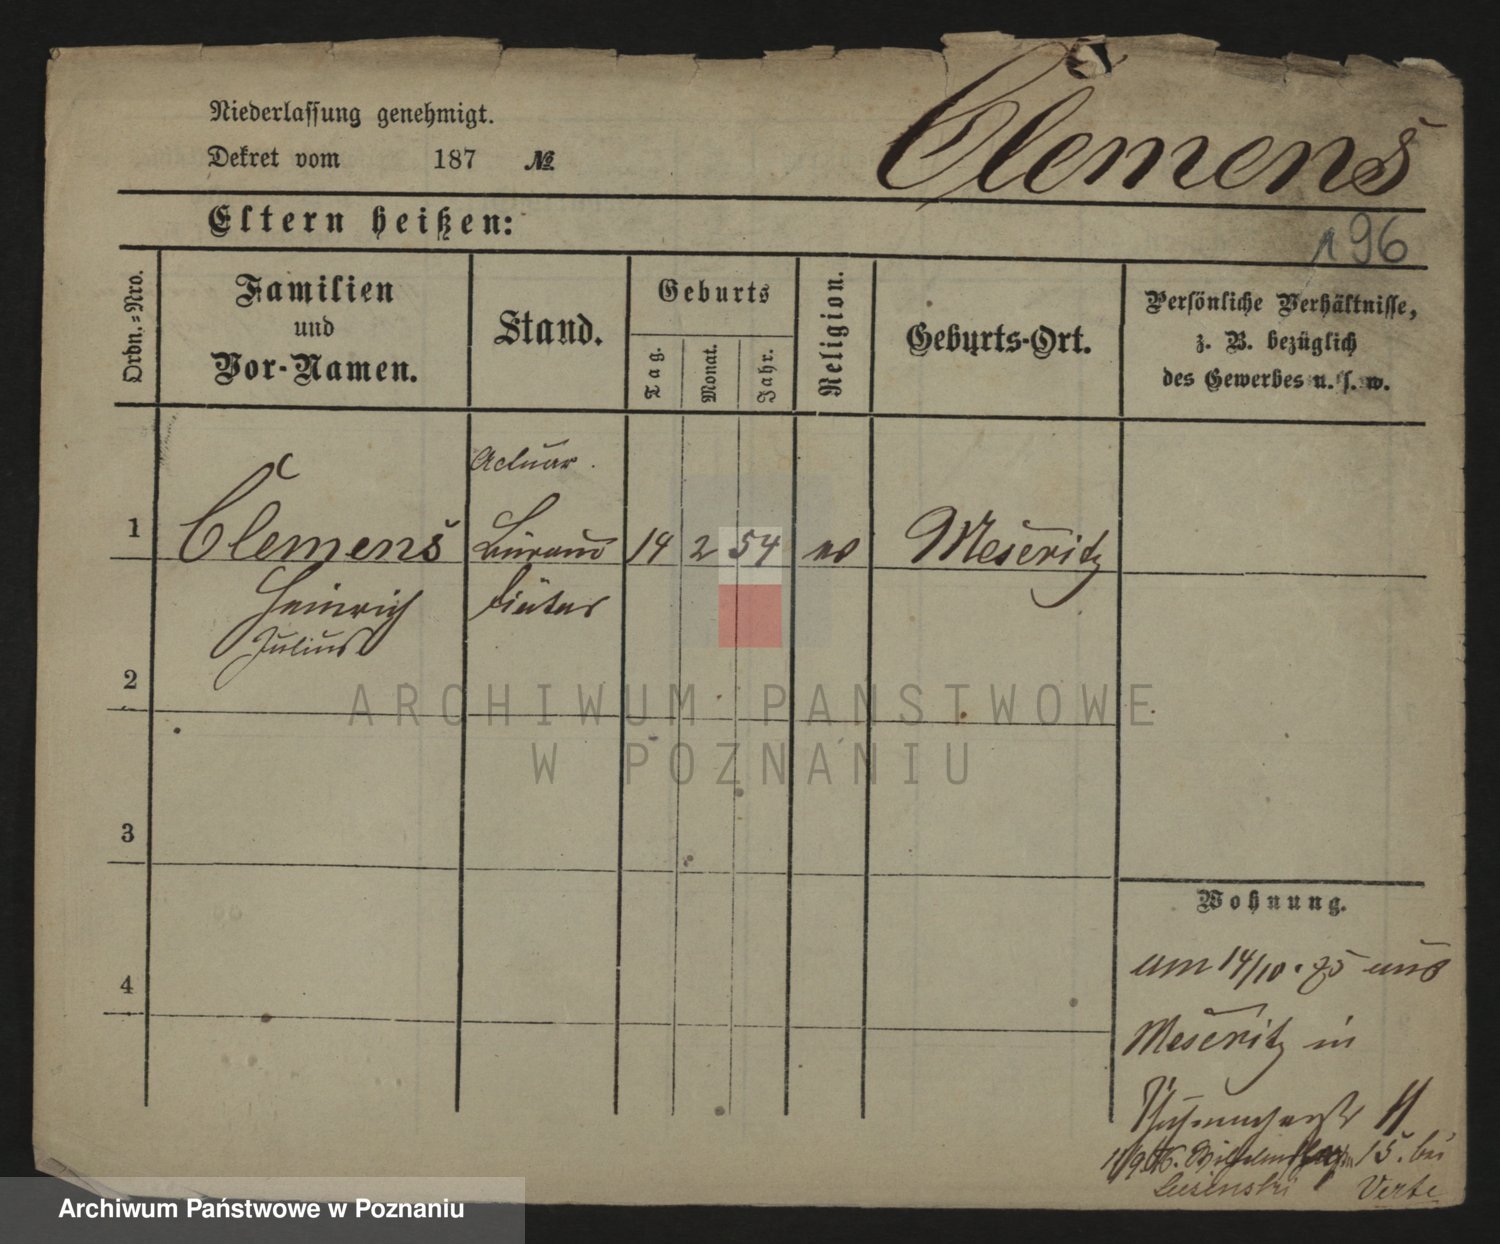 Niederlassung genehmigt.
Dekret vom 187 №
Clemens
Eltern heißen:
196
Ordn.-Nro.
Familien
und
Vor-Namen.
Stand.
Geburts
Tag.
Monat.
Jahr.
Religion.
Geburts-Ort.
Persönliche Verhältnisse,
z. B. bezüglich
des Gewerbes u. s. w.
Actuar.
1 Clemens Büreau 14 2 54 Meseritz
Heinrich Diätar
Julius
2
ARCHIWUM PAŃSTWOWE
W POZNANIU
3
Wohnung.
4
am 14/10.75 aus
Meseritz in
15. bei
Verte
Archiwum Państwowe w Poznaniu